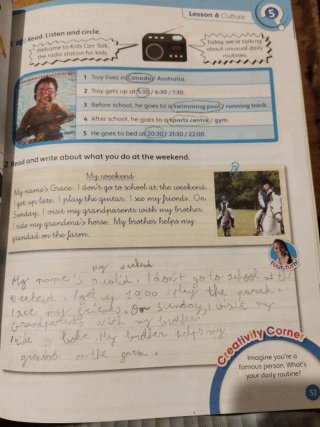 Lesson 6 Culture
5
Read. Listen and circle.
Welcome to Kids Can Talk, the radio station for kids.
Today, we're talking about unusual daily routines.
1 Troy lives in Canada / Australia.
2 Troy gets up at 5:30 / 6:30 / 7:30.
3 Before school, he goes to a swimming pool / running track.
4 After school, he goes to a sports centre / gym.
5 He goes to bed at 20:30 / 21:30 / 22:00.
2 Read and write about what you do at the weekend.
My weekend
My name's Grace. I don't go to school at the weekend.
I get up late. I play the guitar. I see my friends. On
Sunday, I visit my grandparents with my brother.
I ride my grandma's horse. My brother helps my
grandad on the farm.
Your turn!
my weekend
My name's I don't go to school at the
weekend. I get up I play the
I see my friends. On Sunday, I visit my
Grandparents with my brother.
ride My brother helps my
grandad on the farm.
Creativity Corner
Imagine you're a
famous person. What's
your daily routine?
51